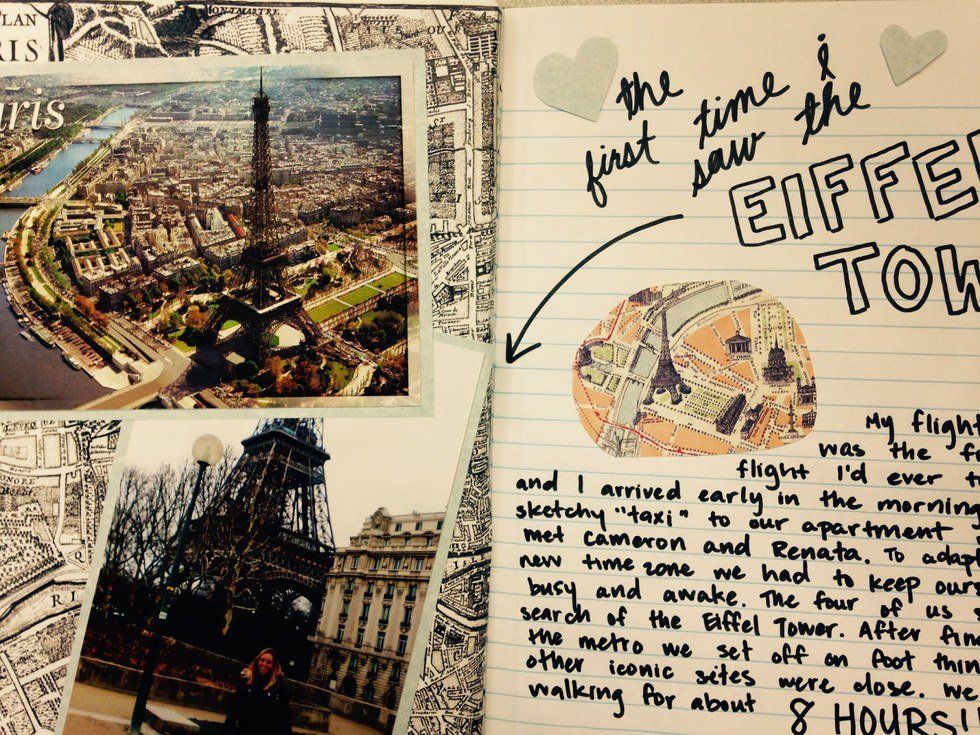 PLAN
RIS
MONTMARTRE
aris
the
first time I
saw the
EIFFEL
TOW
My flight
was the fi
flight I'd ever t
and I arrived early in the morning
sketchy "taxi" to our apartment
met Cameron and Renata. To adapt
new time zone we had to keep our
busy and awake. The four of us
search of the Eiffel Tower. After fin
the metro we set off on foot thin
other iconic sites were close. We
walking for about 8 HOURS!!